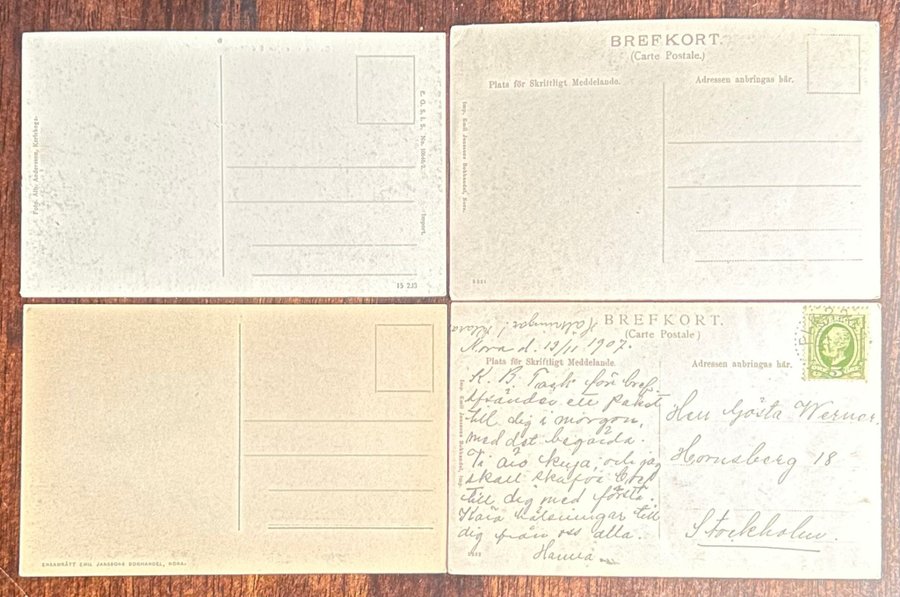 Foto. Alb. Andersson, Karlskoga.
Import.
15 233
BREFKORT.
(Carte Postale.)
Plats för Skriftligt Meddelande.
Adressen anbringas här.
Imp. Emil Janssons Bokhandel, Nora.
ENSAMRÄTT EMIL JANSSONS BOKHANDEL, NORA.
Hälsningar
BREFKORT.
(Carte Postale)
Nora d. 12/11 1907.
Plats för Skriftligt Meddelande.
Adressen anbringas här.
Imp. Emil Janssons Bokhandel,
K. B. Tack för bref.
Afsänder ett paket
till dig i morgon,
med det begärda.
Vi äro kuja, och jag
skall skrifva bref
till dig med första.
Kära hälsningar till
dig från oss alla.
Hanna
Herr Gösta Werner.
Hornsberg 18
Stockholm.
5